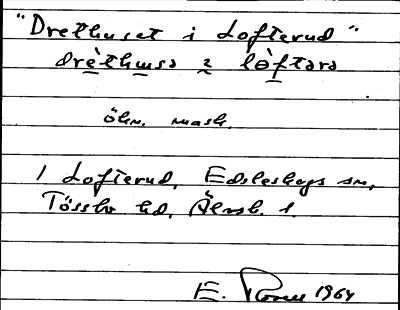 "Drethuset i Lofterud"
drèthusa i lòftara
öhn. mask.
1 Lofterud, Edsleskogs sn,
Tössbo hd, Älvsb. l.
E. Rosen 1964